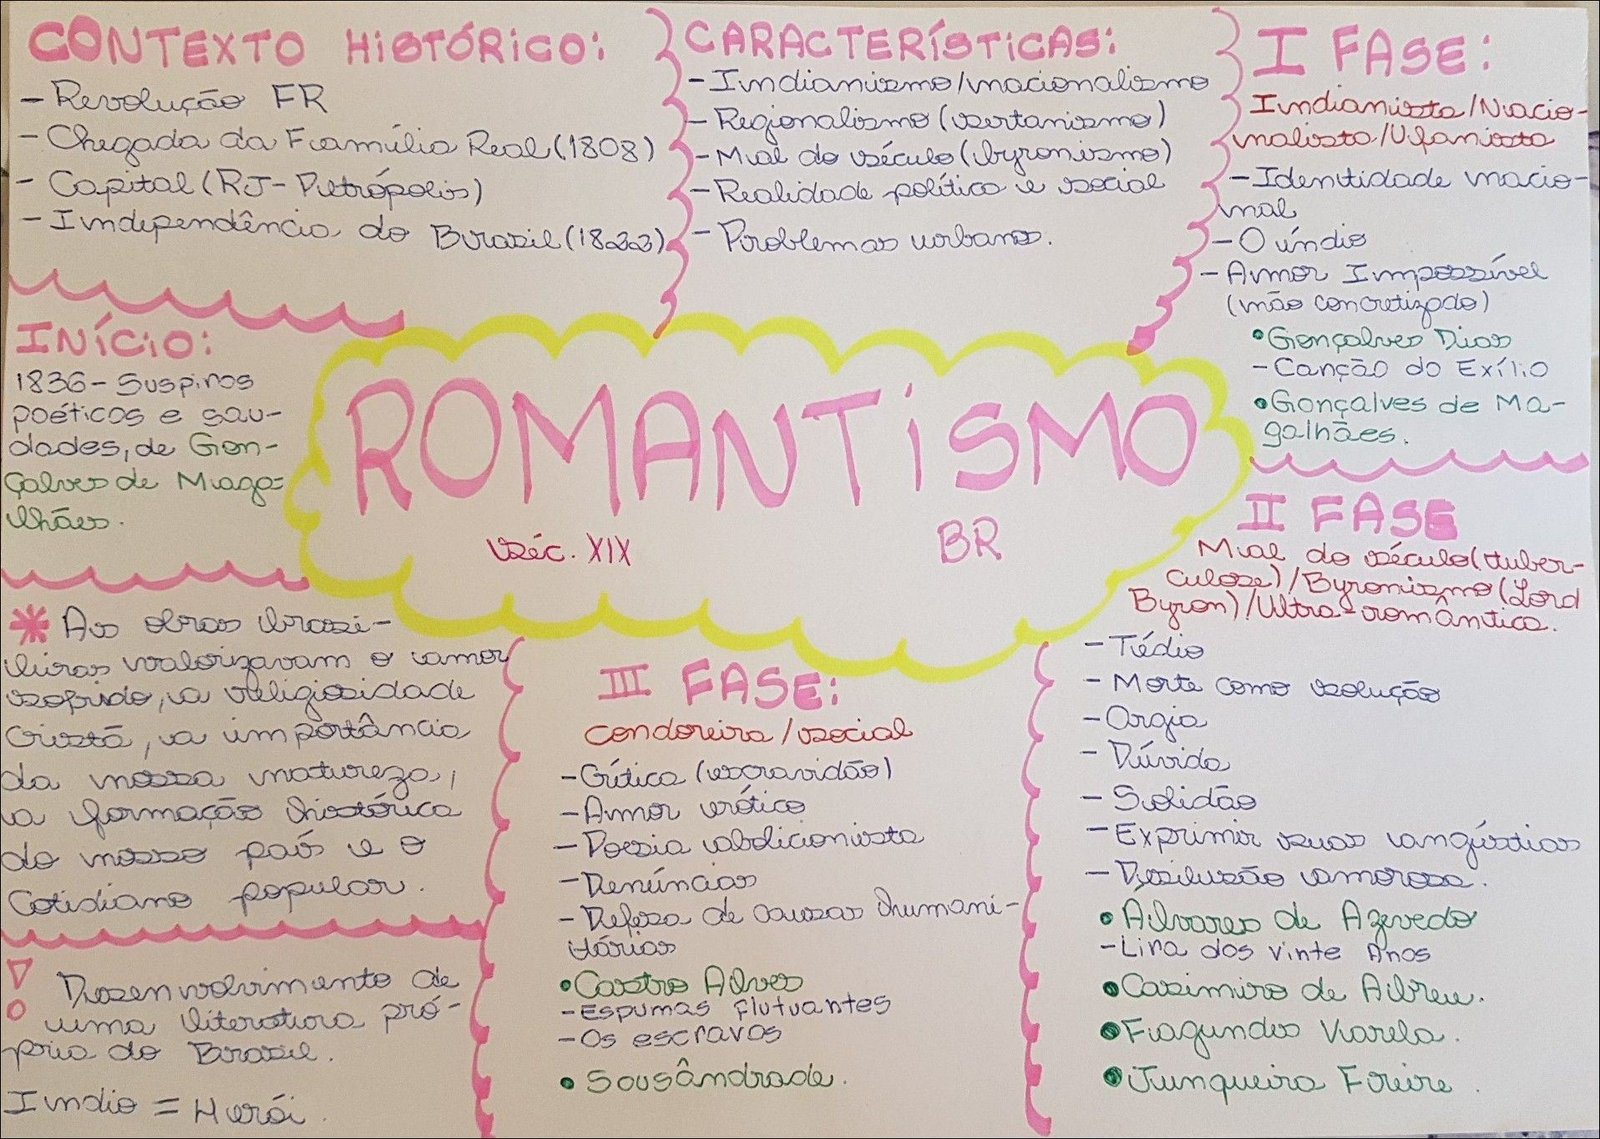 CONTEXTO HISTÓRICO:
- Revolução FR
- Chegada da Família Real (1808)
- Capital (RJ - Petrópolis)
- Independência do Brasil (1822)
CARACTERÍSTICAS:
- Indianismo/nacionalismo
- Regionalismo (sertanismo)
- Mal do século (byronismo)
- Realidade política e social
- Problemas urbanos.
I FASE:
Indianista/Nacio-
nalista/Ufanista
- Identidade nacio-
nal
- O índio
- Amor Impossível
(não concretizado)
• Gonçalves Dias
- Canção do Exílio
• Gonçalves de Ma-
galhães.
INÍCIO:
1836 - Suspiros
poéticos e sau-
dades, de Gon-
çalves de Maga-
lhães.
ROMANTISMO
séc. XIX
BR
II FASE
Mal do século (tuber-
culose)/Byronismo (Lord
Byron)/Ultra-romântica.
- Tédio
- Morte como solução
- Orgia
- Dúvida
- Solidão
- Exprimir suas angústias
- Desilusão amorosa.
• Álvares de Azevedo
- Lira dos vinte Anos
• Casimiro de Abreu.
• Fagundes Varela.
• Junqueira Freire.
* As obras brasi-
leiras valorizavam o amor
sofrido, a religiosidade
cristã, a importância
da nossa natureza,
a formação histórica
do nosso país e o
cotidiano popular.
III FASE:
Condoreira/social
- Crítica (escravidão)
- Amor erótico
- Poesia abolicionista
- Denúncias
- Defesa de causas humani-
tárias
• Castro Alves
- Espumas flutuantes
- Os escravos
• Sousândrade.
! Desenvolvimento de
uma literatura pró-
pria do Brasil.
Indio = Herói.